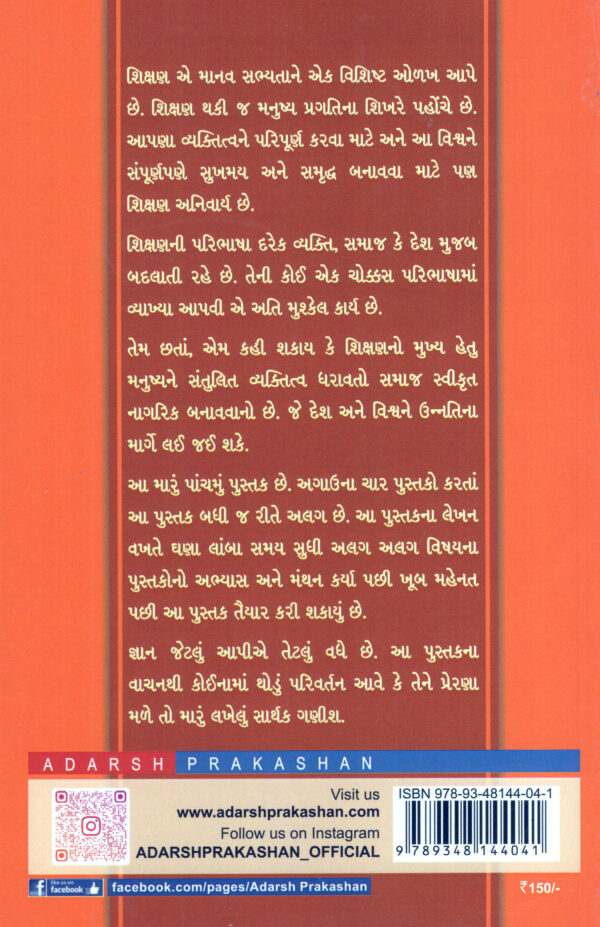 શિક્ષણ એ માનવ સભ્યતાને એક વિશિષ્ટ ઓળખ આપે
છે. શિક્ષણ થકી જ મનુષ્ય પ્રગતિના શિખરે પહોંચે છે.
આપણા વ્યક્તિત્વને પરિપૂર્ણ કરવા માટે અને આ વિશ્વને
સંપૂર્ણપણે સુખમય અને સમૃદ્ધ બનાવવા માટે પણ
શિક્ષણ અનિવાર્ય છે.
શિક્ષણની પરિભાષા દરેક વ્યક્તિ, સમાજ કે દેશ મુજબ
બદલાતી રહે છે. તેની કોઈ એક ચોક્કસ પરિભાષામાં
વ્યાખ્યા આપવી એ અતિ મુશ્કેલ કાર્ય છે.
તેમ છતાં, એમ કહી શકાય કે શિક્ષણનો મુખ્ય હેતુ
મનુષ્યને સંતુલિત વ્યક્તિત્વ ધરાવતો સમાજ સ્વીકૃત
નાગરિક બનાવવાનો છે. જે દેશ અને વિશ્વને ઉન્નતિના
માર્ગે લઈ જઈ શકે.
આ મારું પાંચમું પુસ્તક છે. અગાઉના ચાર પુસ્તકો કરતાં
આ પુસ્તક બધી જ રીતે અલગ છે. આ પુસ્તકના લેખન
વખતે ઘણા લાંબા સમય સુધી અલગ અલગ વિષયના
પુસ્તકોનો અભ્યાસ અને મંથન કર્યા પછી ખૂબ મહેનત
પછી આ પુસ્તક તૈયાર કરી શકાયું છે.
જ્ઞાન જેટલું આપીએ તેટલું વધે છે. આ પુસ્તકના
વાચનથી કોઈનામાં થોડું પરિવર્તન આવે કે તેને પ્રેરણા
મળે તો મારું લખેલું સાર્થક ગણીશ.
ADARSH PRAKASHAN
Visit us
www.adarshprakashan.com
Follow us on Instagram
ADARSHPRAKASHAN_OFFICIAL
ISBN 978-93-48144-04-1
9 789348 144041
like us on
facebook
facebook.com/pages/Adarsh Prakashan
₹150/-